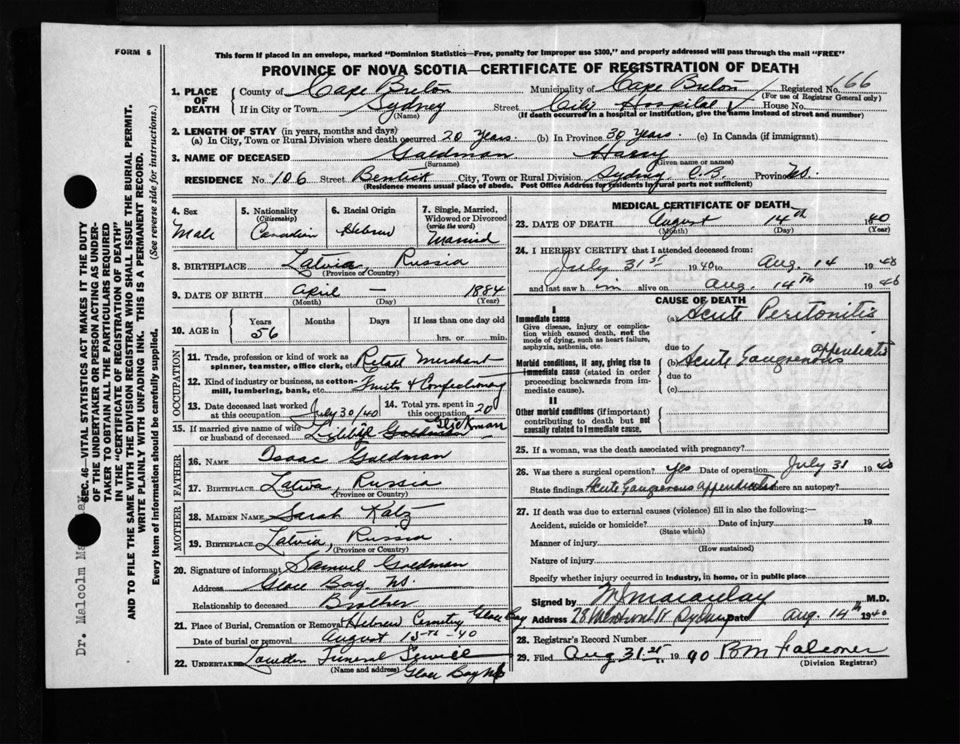 FORM 6
This form if placed in an envelope, marked "Dominion Statistics—Free, penalty for improper use $300," and properly addressed will pass through the mail "FREE"
PROVINCE OF NOVA SCOTIA—CERTIFICATE OF REGISTRATION OF DEATH
1. PLACE OF DEATH
County of Cape Breton Municipality of Cape Breton Registered No. 166
(For use of Registrar General only)
If in City or Town Sydney Street City Hospital House No.
(Name) (If death occurred in a hospital or institution, give the name instead of street and number)
2. LENGTH OF STAY (in years, months and days)
(a) In City, Town or Rural Division where death occurred 20 Years. (b) In Province 30 Years. (c) In Canada (if immigrant)
3. NAME OF DECEASED Goldman Harry
(Surname) (Given name or names)
RESIDENCE No. 106 Street City, Town or Rural Division Sydney C.B. Province NS.
(Residence means usual place of abode. Post Office Address for residents in rural parts not sufficient)
4. Sex Male
5. Nationality (Citizenship) Canadian
6. Racial Origin Hebrew
7. Single, Married, Widowed or Divorced (write the word) Married
8. BIRTHPLACE Latvia, Russia
(Province or Country)
9. DATE OF BIRTH April — 1884
(Month) (Day) (Year)
10. AGE in Years 56 Months Days If less than one day old
hrs. or min.
OCCUPATION
11. Trade, profession or kind of work as spinner, teamster, office clerk, etc. Retail Merchant
12. Kind of industry or business, as cotton-mill, lumbering, bank, etc. Fruits & Confectionery
13. Date deceased last worked at this occupation July 30/40
14. Total yrs. spent in this occupation 20
15. If married give name of wife or husband of deceased Glickman
FATHER
16. Name Isaac Goldman
17. Birthplace Latvia, Russia
(Province or Country)
MOTHER
18. Maiden Name Sarah Katz
19. Birthplace Latvia, Russia.
(Province or Country)
20. Signature of informant Samuel Goldman
Address Glace Bay. NS.
Relationship to deceased Brother
21. Place of Burial, Cremation or Removal Hebrew Cemetery Glace Bay
Date of burial or removal August 15th -40
22. UNDERTAKER Funeral Service
(Name and address) Glace Bay NS
MEDICAL CERTIFICATE OF DEATH
23. DATE OF DEATH August 14th 1940
(Month) (Day) (Year)
24. I HEREBY CERTIFY that I attended deceased from:
July 31st 1940 to Aug 14 1940
and last saw him alive on Aug. 14th 1940
CAUSE OF DEATH
I
Immediate cause (a) Acute Peritonitis
Give disease, injury or complication which caused death, not the mode of dying, such as heart failure, asphyxia, asthenia, etc.
due to
Morbid conditions, if any, giving rise to immediate cause (stated in order proceeding backwards from immediate cause).
(b) Acute Gangrenous appendicitis
due to
(c)
II
Other morbid conditions (if important) contributing to death but not causally related to immediate cause.
25. If a woman, was the death associated with pregnancy?
26. Was there a surgical operation? Yes Date of operation July 31 1940
State findings Acute Gangrenous Appendicitis Was there an autopsy?
27. If death was due to external causes (violence) fill in also the following:—
Accident, suicide or homicide? Date of injury 19
(State which)
Manner of injury
(How sustained)
Nature of injury
Specify whether injury occurred in industry, in home, or in public place
Signed by M.D.
Address Sydney Date Aug. 14th 1940
28. Registrar's Record Number
29. Filed Aug 31st 1940 BM Falconer
(Division Registrar)
SEC. 46—VITAL STATISTICS ACT MAKES IT THE DUTY
OF THE UNDERTAKER OR PERSON ACTING AS UNDER-
TAKER TO OBTAIN ALL THE PARTICULARS REQUIRED
IN THE "CERTIFICATE OF REGISTRATION OF DEATH"
AND TO FILE THE SAME WITH THE DIVISION REGISTRAR WHO SHALL ISSUE THE BURIAL PERMIT.
WRITE PLAINLY WITH UNFADING INK. THIS IS A PERMANENT RECORD.
Every item of information should be carefully supplied. (See reverse side for instructions.)
Dr. Malcolm